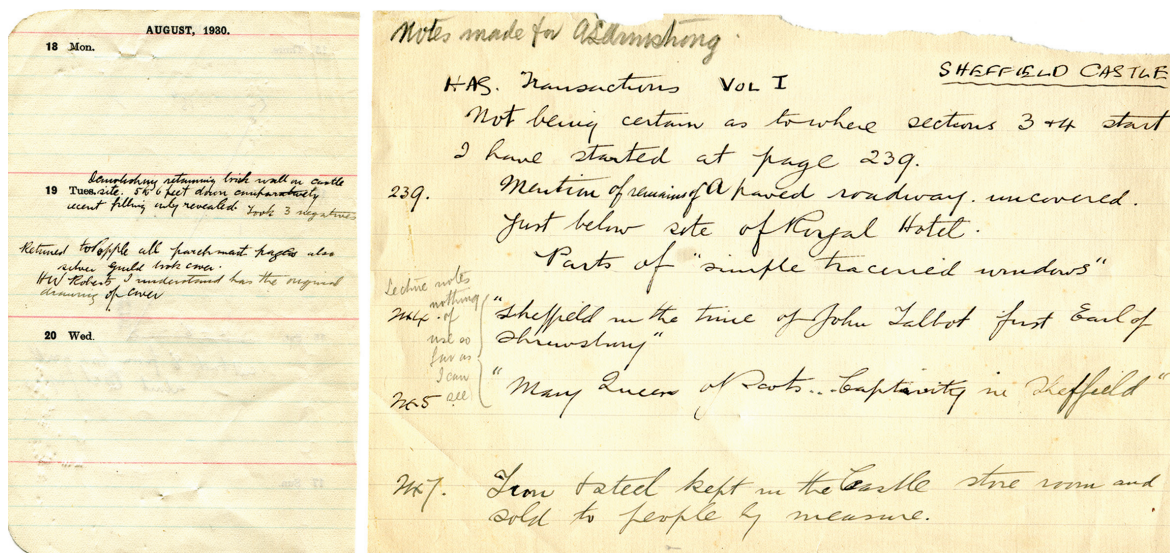 AUGUST, 1930.
18 Mon.
Demolishing retaining brick wall on castle
19 Tues. site. 5 to 6 feet down comparatively
recent filling only revealed. Took 3 negatives
Returned to Apple all parchment pages also
silver guild book cover.
HW Roberts I understand has the original
drawing of cover
20 Wed.
Notes made for ALArmstrong.
SHEFFIELD CASTLE
HAS. Transactions VOL I
Not being certain as to where sections 3 + 4 start
I have started at page 239.
239. Mention of remains of A paved roadway. uncovered.
Just below site of Royal Hotel.
Parts of "simple traceried windows"
Lecture notes
nothing
of
use so
far as
I can
see
"Sheffield in the time of John Talbot first Earl of
Shrewsbury"
"Mary Queen of Scots.. Captivity in Sheffield"
Iron & steel kept in the Castle store room and
sold to people by measure.